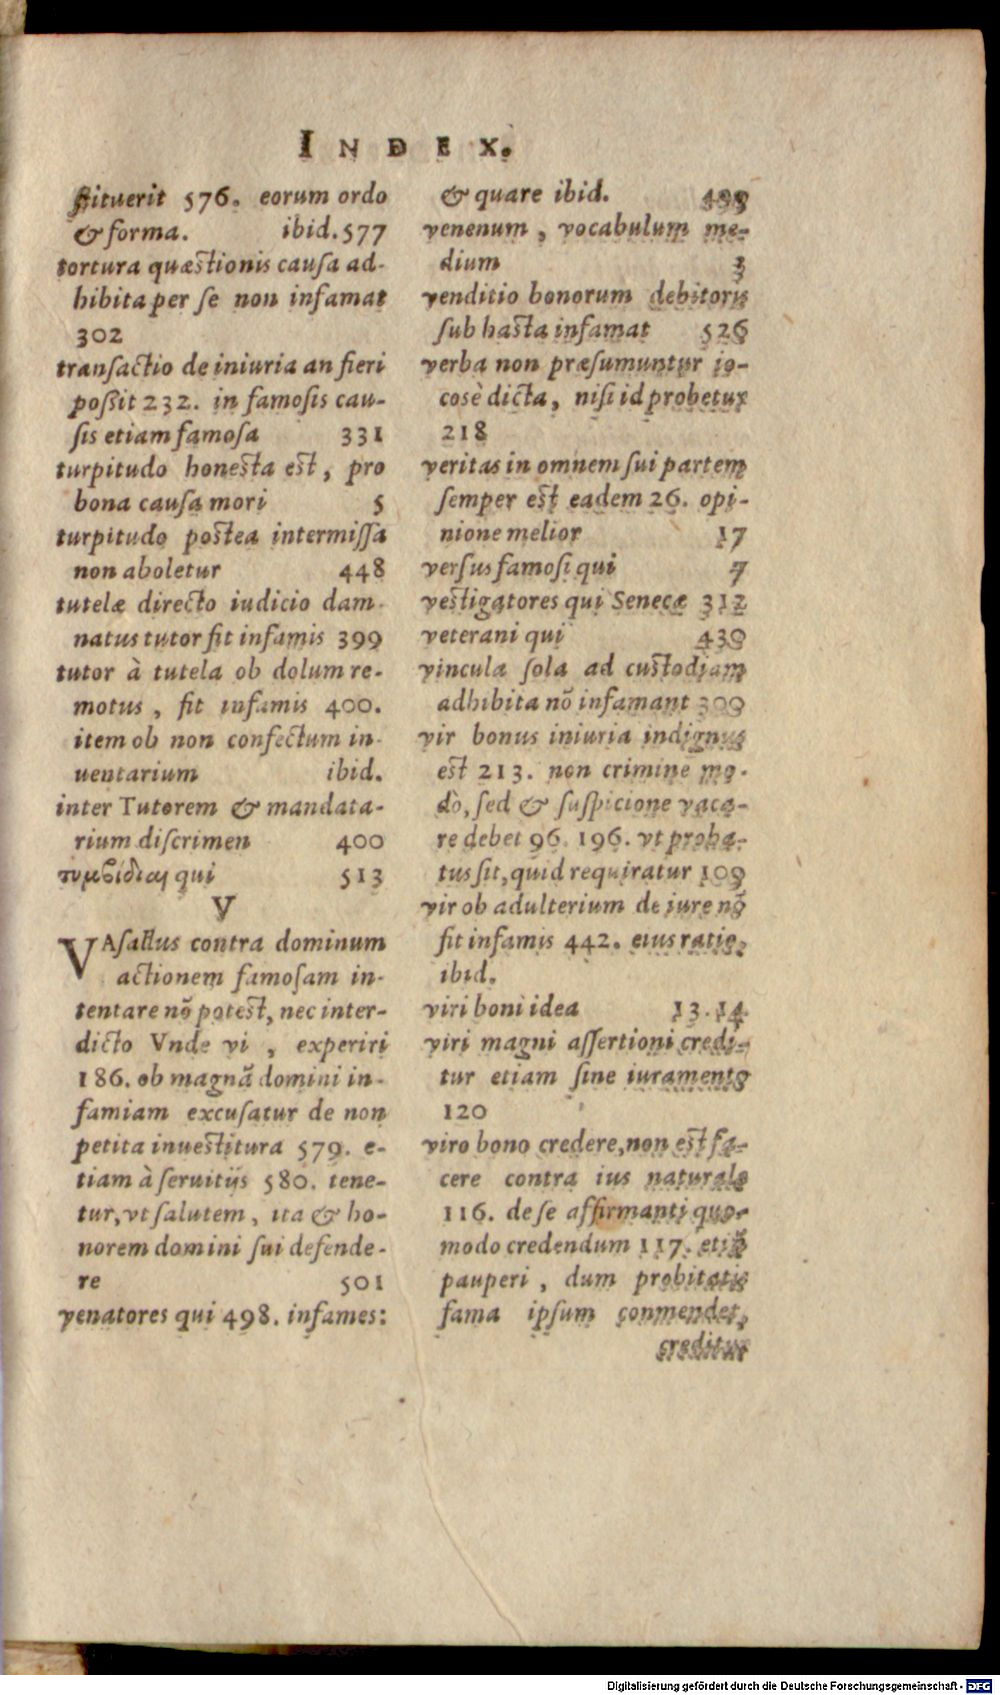 INDEX.
ſtituerit 576. eorum ordo
& forma. ibid. 577
tortura quæstionis cauſa ad-
hibita per ſe non infamat
302
tranſactio de iniuria an fieri
poſsit 232. in famoſis cau-
ſis etiam famoſa 331
turpitudo honesta est, pro
bona cauſa mori 5
turpitudo postea intermiſſa
non aboletur 448
tutelæ directo iudicio dam-
natus tutor fit infamis 399
tutor à tutela ob dolum re-
motus, fit infamis 400.
item ob non confectum in-
uentarium ibid.
inter Tutorem & mandata-
rium diſcrimen 400
qui 513
V
VAſallus contra dominum
actionem famoſam in-
tentare nõ potest, nec inter-
dicto Vnde vi, experiri
186. ob magnã domini in-
famiam excuſatur de non
petita inuestitura 579. e-
tiam à ſeruitijs 580. tene-
tur, vt ſalutem, ita & ho-
norem domini ſui defende-
re 501
venatores qui 498. infames:
& quare ibid. 499
venenum, vocabulum me-
dium 3
venditio bonorum debitoris
ſub hasta infamat 526
verba non præſumuntur io-
cosè dicta, niſi id probetur
218
veritas in omnem ſui partem
ſemper est eadem 26. opi-
nione melior 17
verſus famoſi qui 7
vestigatores qui Senecæ 312
veterani qui 430
vincula ſola ad custodiam
adhibita nõ infamant 309
vir bonus iniuria indignus
est 213. non crimine mo-
dò, ſed & ſuſpicione vaca-
re debet 96. 196. vt proba-
tus ſit, quid requiratur 109
vir ob adulterium de iure nõ
fit infamis 442. eius ratio.
ibid.
viri boni idea 13. 14
viri magni aſſertioni credi-
tur etiam ſine iuramento
120
viro bono credere, non est fa-
cere contra ius naturale
116. de ſe affirmanti quo-
modo credendum 117. etiã
pauperi, dum probitatis
fama ipſum conmendet,
creditur
Digitalisierung gefördert durch die Deutsche Forschungsgemeinschaft - DFG